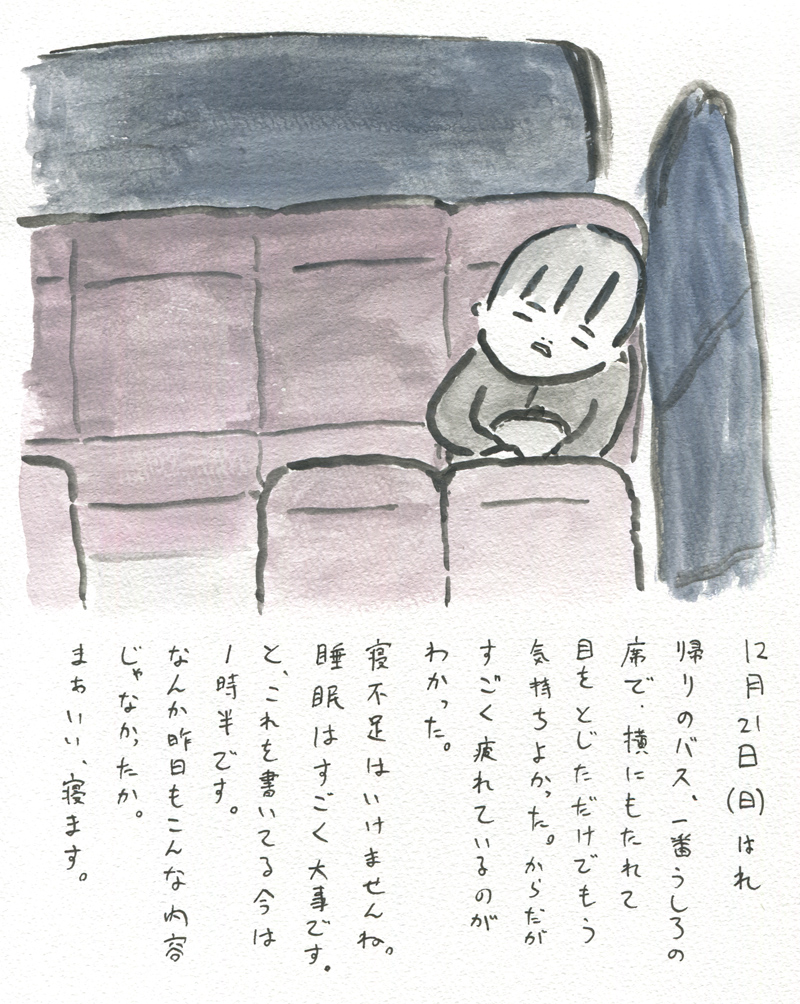 12月21日(日)はれ
帰りのバス、一番うしろの
席で、横にもたれて
目をとじただけでもう
気持ちよかった。からだが
すごく疲れているのが
わかった。
寝不足はいけませんね。
睡眠はすごく大事です。
と、これを書いてる今は
1時半です。
なんか昨日もこんな内容
じゃなかったか。
まぁいい、寝ます。